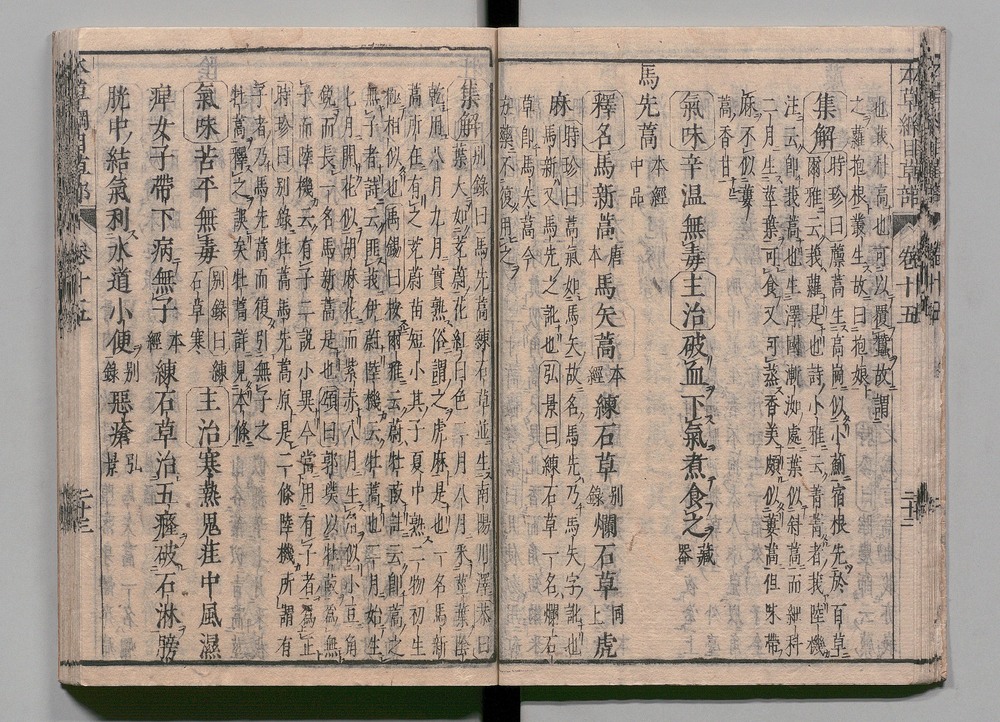 也莪朴高也可以覆蠶故謂
之蘿抱根叢生故曰抱娘
集解時珍曰蘪蒿生高崗似小薊宿根先於百草
爾雅云莪蘿是也詩小雅云菁菁者莪陸機
注云卽莪蒿也生澤國漸洳處葉似斜蒿而細科
二月生莖葉可食又可蒸香美頗似蔞蒿但味帶
麻不似蔞
蒿香甘
氣味辛温無毒主治破血下氣煮食之藏器
馬先蒿本經中品
釋名馬新蒿唐本馬矢蒿本經練石草别錄爛石草同上虎
麻時珍曰蒿氣如馬矢故名馬先乃馬矢字訛也
馬新又馬先之訛也弘景曰練石草一名爛石
草卽馬矢蒿今
方藥不復用之
集解别錄曰馬先蒿練石草並生南陽川澤恭曰
葉大如茺蔚花紅白色二月八月采莖葉陰
乾用八月九月實熟俗謂之虎麻是也一名馬新
蒿所在有之茺蔚苗短小其子夏中熟二物初生
極相似也禹錫曰按爾雅云蔚牡菣註云卽蒿之
無子者詩云匪莪伊蔚陸機云牡蒿也二月始生
七月開花似胡麻花而紫赤八月生角似小豆角
鋭而長一名馬新蒿是也頌曰郭璞以牡菣爲無
子而陸機云有子二說小異今當用有子者爲正
時珍曰别錄牡蒿馬先蒿原是二條陸機所謂有
子者乃馬先蒿而復引無子之
牡蒿釋之誤矣牡蒿詳見本條
氣味苦平無毒别錄曰練石草寒主治寒熱鬼疰中風濕
痺女子帶下病無子本經練石草治五癃破石淋膀
胱中結氣利水道小便别錄惡瘡弘景
本草綱目草部 卷十五